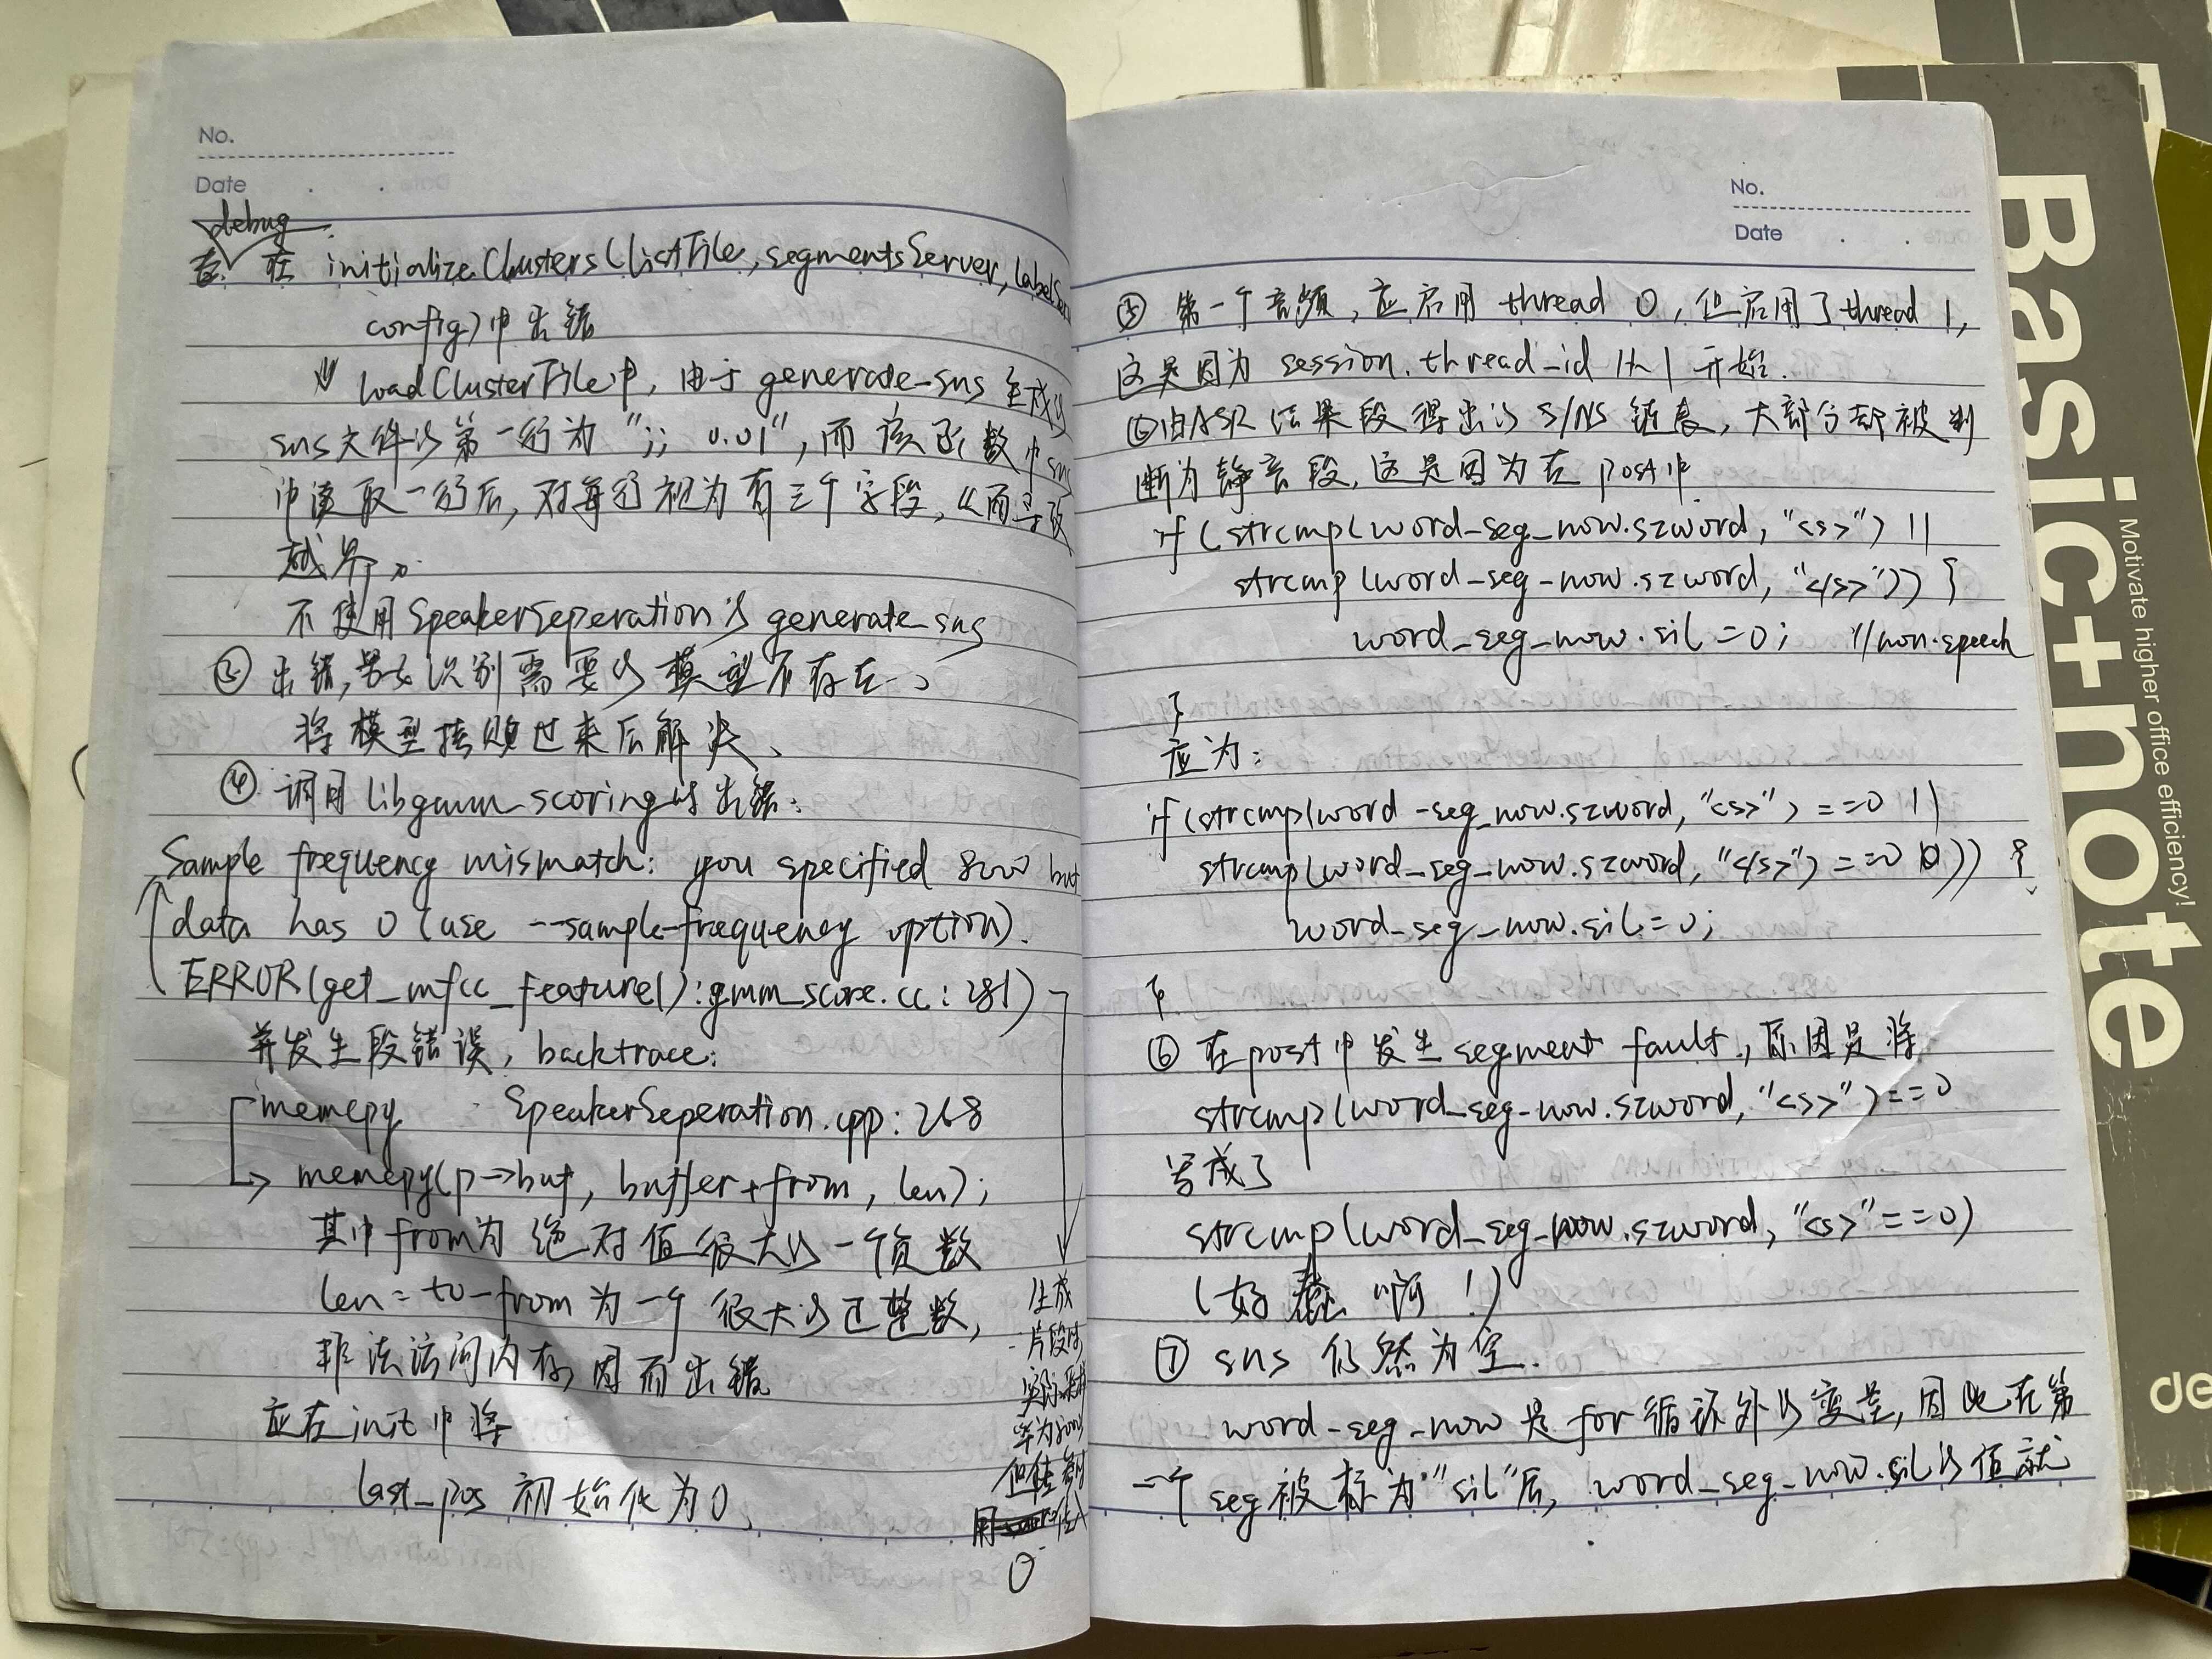 No.
Date
debug
在 initializeClusters(listFile, segmentsServer, label
config)中出错
loadClusterFile中,由于generate_sns生成的
sns文件的第一行为";; 0.01",而该函数中sns
中读取一行后,对每行视为有三个字段,从而导致
越界。
不使用SpeakerSeperation的generate_sns
③ 出错,男女识别需要的模型不存在、
将模型拷贝过来后解决、
④ 调用libgmm_scoring时出错:
Sample frequency mismatch: you specified 8000 but
data has 0 (use --sample-frequency option).
ERROR(get_mfcc_feature():gmm_score.cc:281)
并发生段错误,backtrace:
memcpy SpeakerSeperation.cpp:268
memcpy(p->buf, buffer+from, len);
其中from为绝对值很大的一个负数
len=to-from为一个很大的正整数,
非法访问内存,因而出错
应在init中将
last_pos初始化为0、
生成
片段时
实际采样
率为8000
但
用
0
No.
Date
⑤ 第一个音频,应启用thread 0,但启用了thread 1,
这是因为session.thread_id从1开始.
⑥由ASR结果段得出的S/NS链表,大部分却被判
断为静音段,这是因为在post中
if(strcmp(word_seg_now.szword, "<s>") ||
strcmp(word_seg_now.szword, "</s>")) {
word_seg_now.sil=0; //non-speech
}
应为:
if(strcmp(word_seg_now.szword, "<s>")==0 ||
strcmp(word_seg_now.szword, "</s>")==0)) {
word_seg_now.sil=0;
}
⑥ 在post中发生segment fault,原因是将
strcmp(word_seg_now.szword, "<s>")==0
写成了
strcmp(word_seg_now.szword, "<s>"==0)
(好蠢啊!)
⑦ sns仍然为空.
word_seg_now是for循环外的变量,因此在第
一个seg被标为"sil"后, word_seg_now.sil的值就
Basic+note
Motivate higher office efficiency!
de